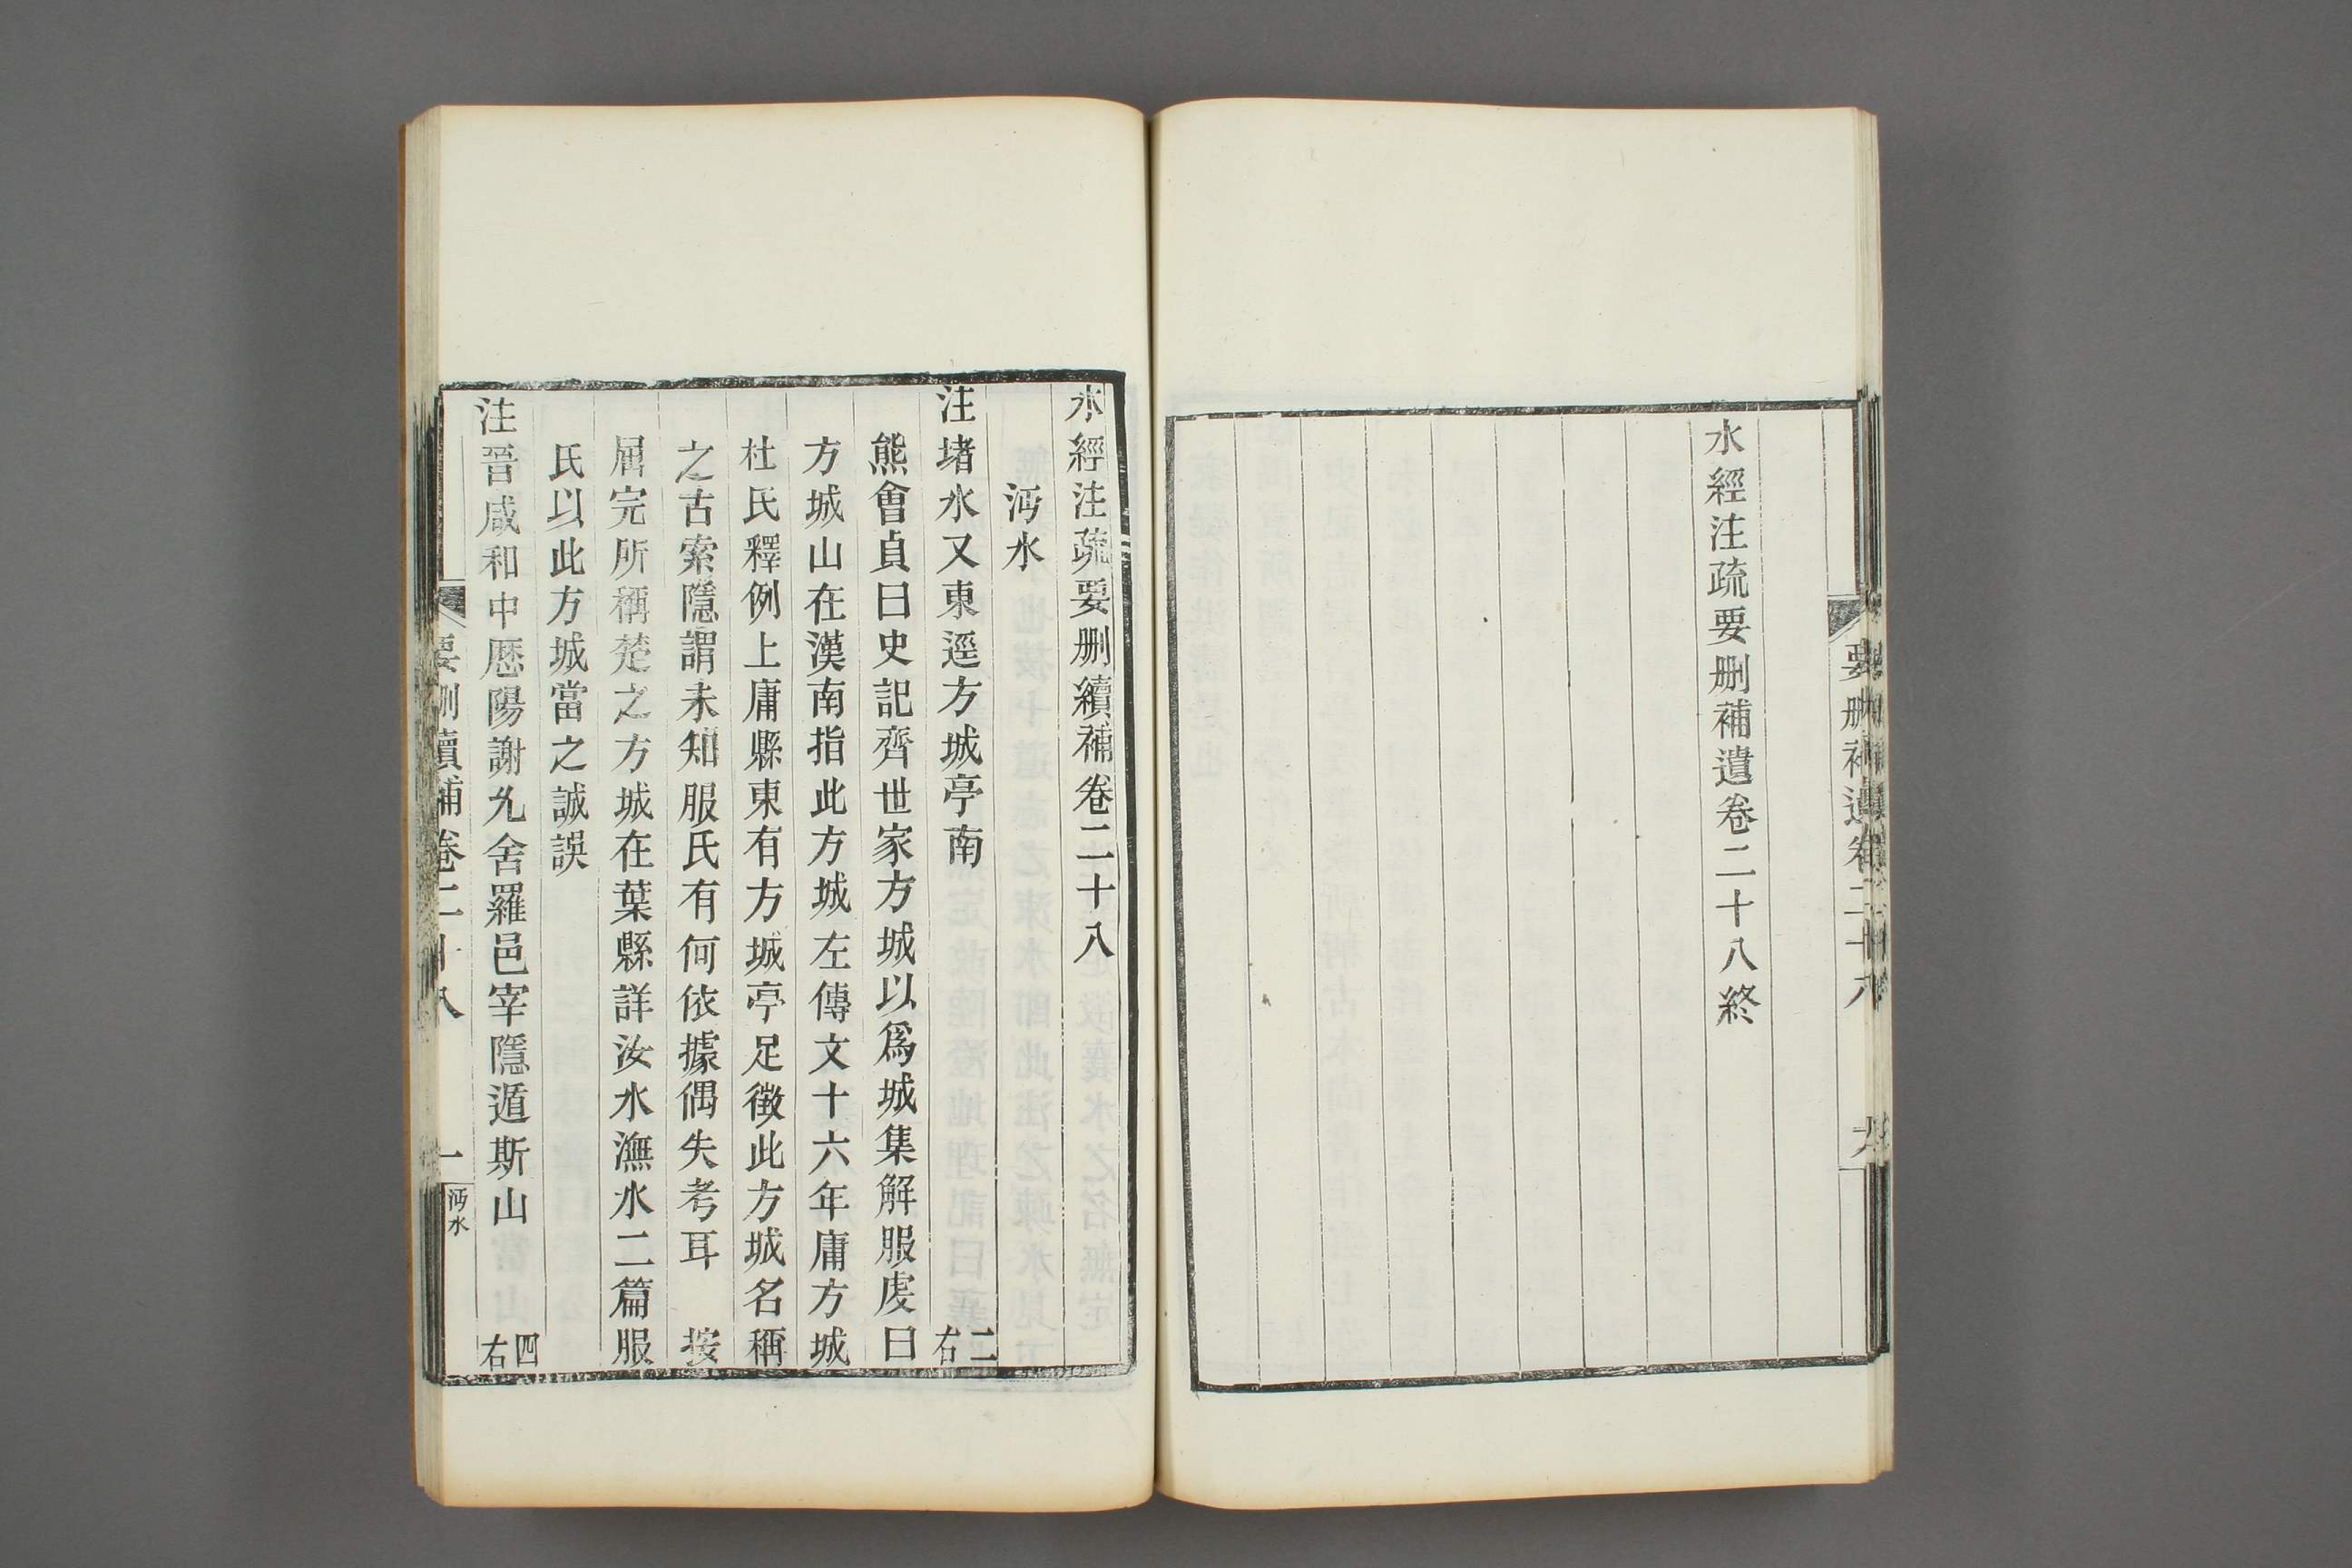 水經注疏要刪補遺卷二十八終
要刪補遺卷二十八
水經注疏要刪續補卷二十八
沔水
注堵水又東逕方城亭南 二右
熊會貞曰史記齊世家方城以爲城集解服虔曰
方城山在漢南指此方城左傳文十六年庸方城
杜氏釋例上庸縣東有方城亭足徵此方城名稱
之古索隱謂未知服氏有何依據偶失考耳 按
屈完所稱楚之方城在葉縣詳汝水潕水二篇服
氏以此方城當之誠誤
注晉咸和中歷陽謝允舍羅邑宰隱遁斯山 四右
要刪續補卷二十八 一 沔水